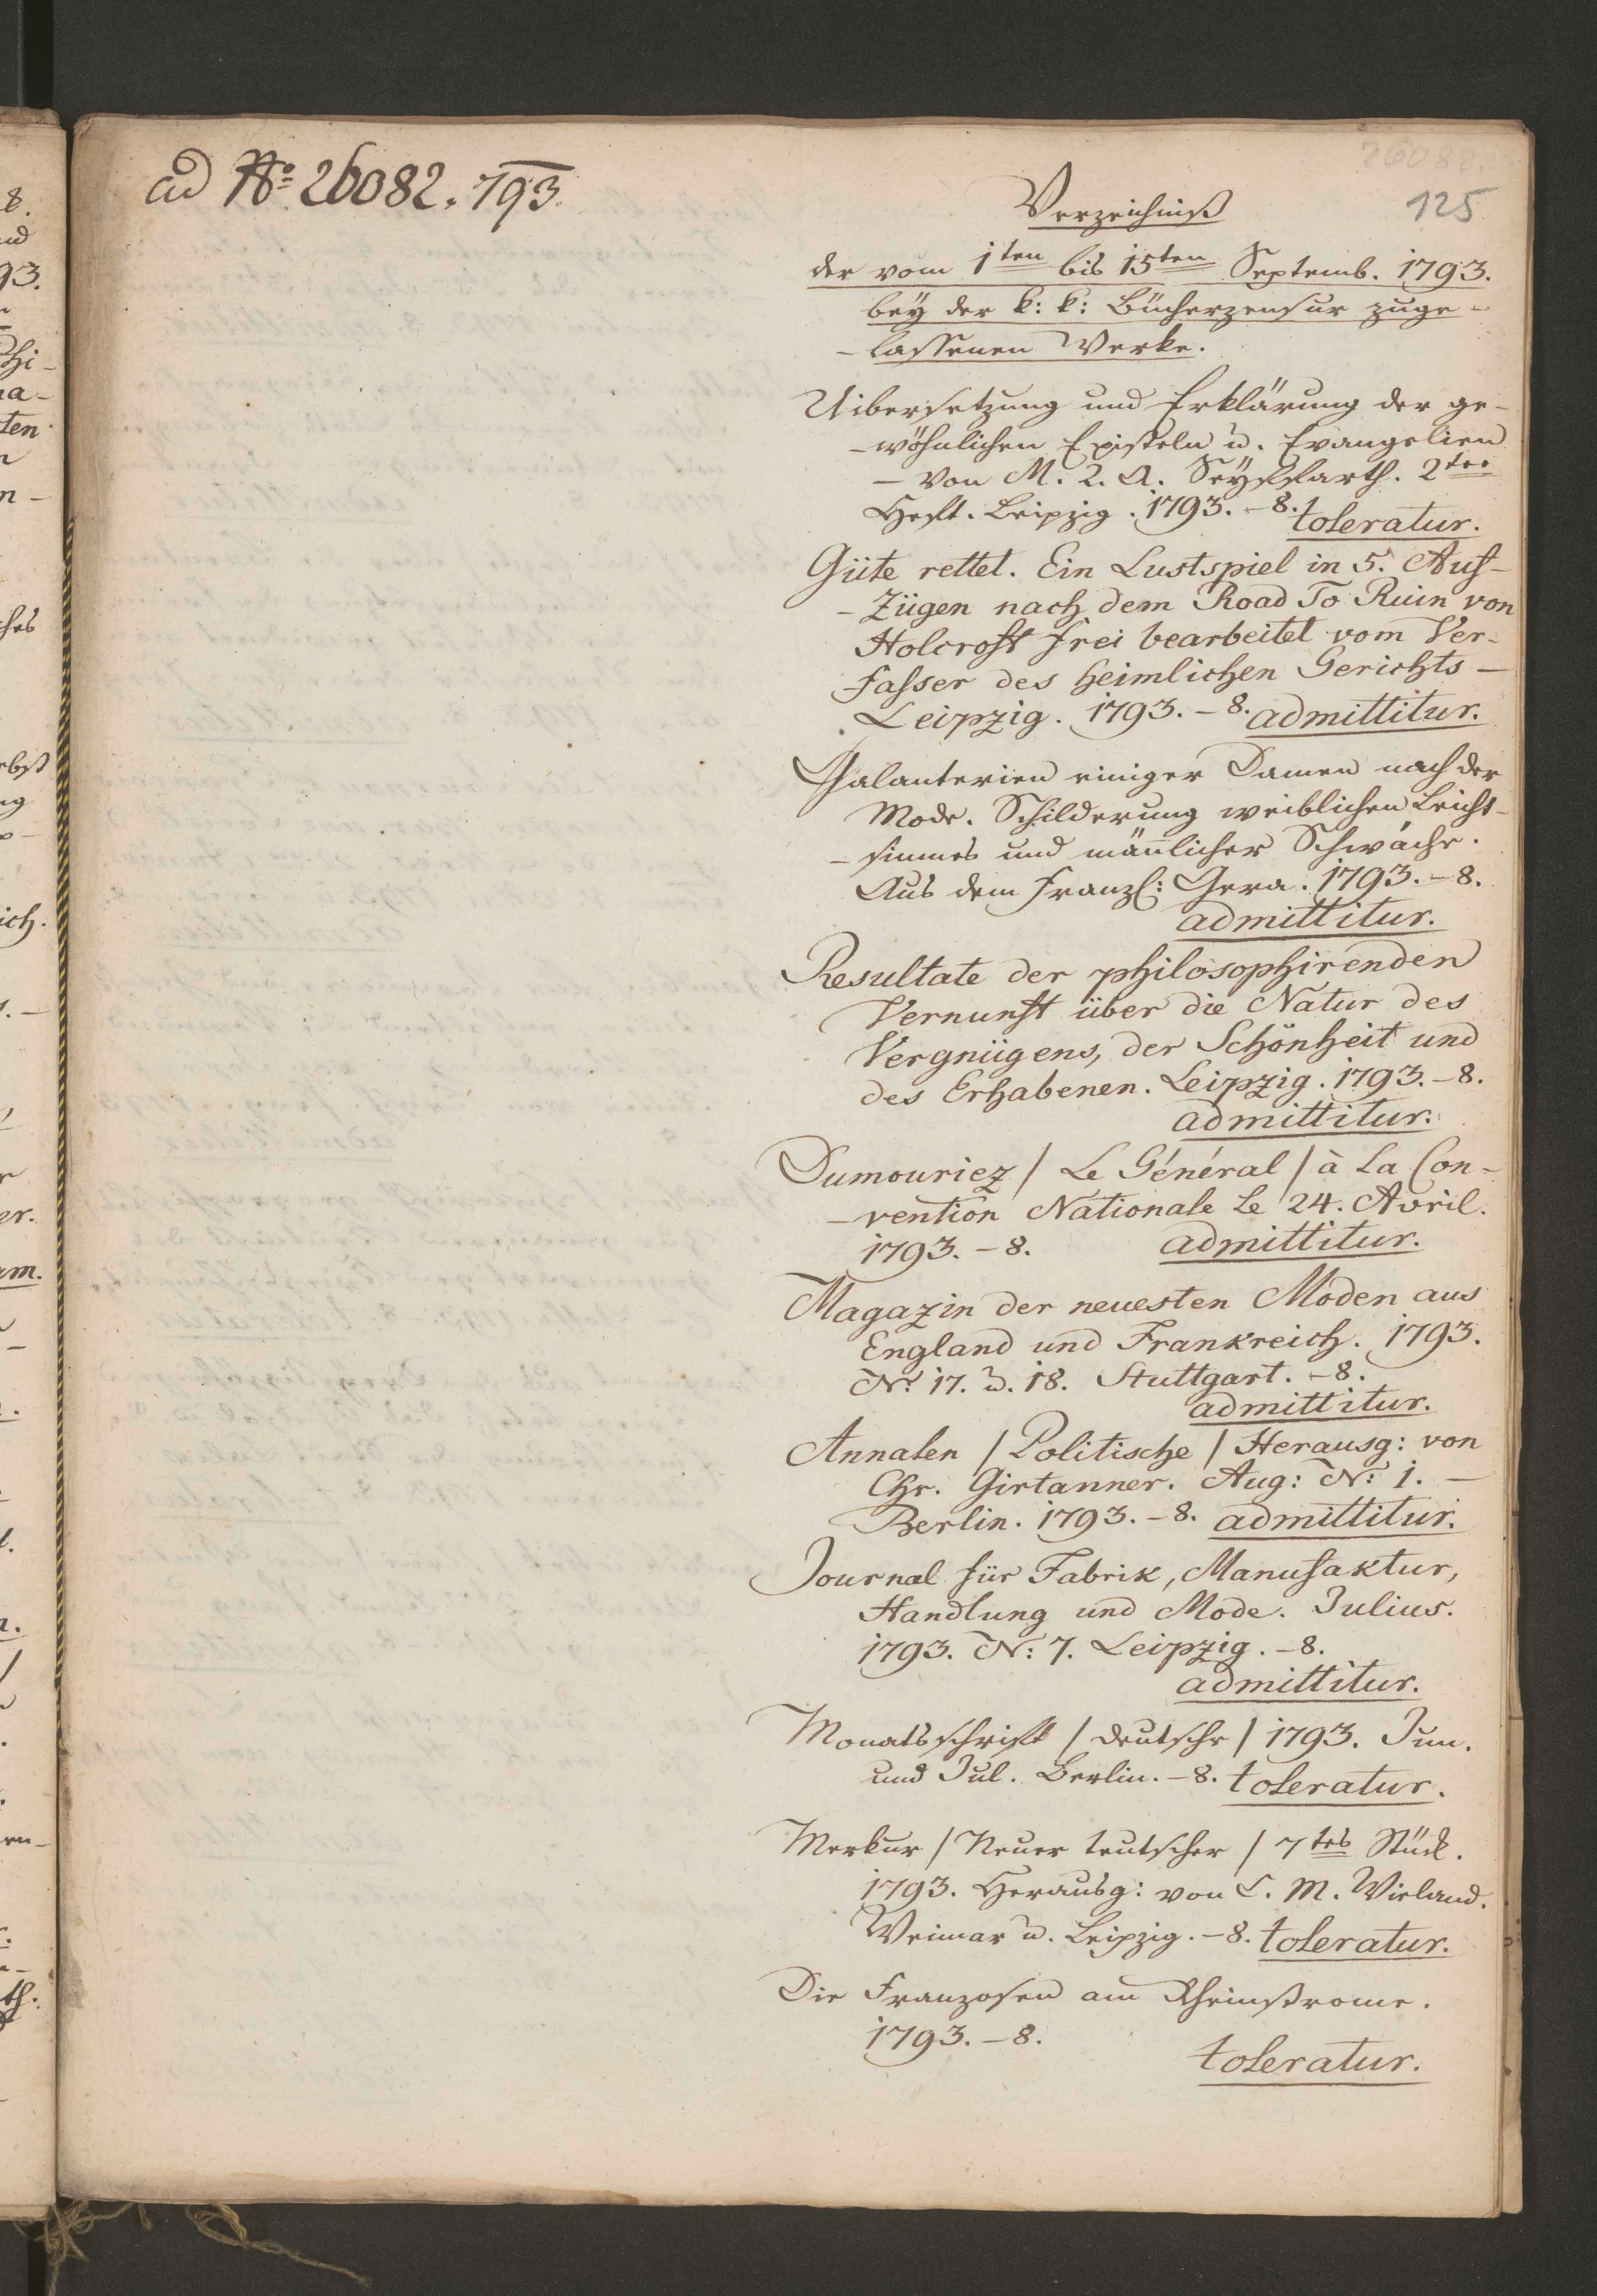 ad No: 26082. 793.
26082.
125
Verzeichniß
der vom 1ten bis 15ten Septemb. 1793.
bey der k: k: Bücherzensur zuge-
-lassenen Werke.
Uibersetzung und Erklärung der ge-
-wöhnlichen Episteln u. Evangelien
- von M. L. A. Seyffarth. 2ter
Heft. Leipzig. 1793. - 8. toleratur.
Güte rettet. Ein Lustspiel in 5. Auf-
-Zügen nach dem Road To Ruin von
Holcroft frei bearbeitet vom Ver-
fasser des heimlichen Gerichts -
Leipzig. 1793. - 8. admittitur.
Galanterien einiger Damen nach der
Mode. Schilderung weiblichen Leicht-
-sinnes und män̄licher Schwäche.
Aus dem Franz: Gera. 1793. - 8.
admittitur.
Resultate der philosophirenden
Vernunft über die Natur des
Vergnügens, der Schönheit und
des Erhabenen. Leipzig. 1793. - 8.
admittitur.
Dumouriez / Le Général / à La Con-
-vention Nationale Le 24. Avril.
1793. - 8. admittitur.
Magazin der neuesten Moden aus
England und Frankreich. 1793.
Nr: 17. u. 18. Stuttgart. - 8.
admittitur.
Annalen / Politische / Herausg: von
Chr. Girtanner. Aug: N: 1. -
Berlin. 1793. - 8. admittitur.
Journal für Fabrik, Manufaktur,
Handlung und Mode. Julius.
1793. N: 7. Leipzig. - 8.
admittitur.
Monatsschrift / deutsche / 1793. Jun.
und Jul. Berlin. - 8. toleratur.
Merkur / Neuer teutscher / 7tes Stück.
1793. Herausg: von C. M. Wieland.
Weimar u. Leipzig. - 8. toleratur.
Die Franzosen am Rheinstrome.
1793. - 8.
toleratur.